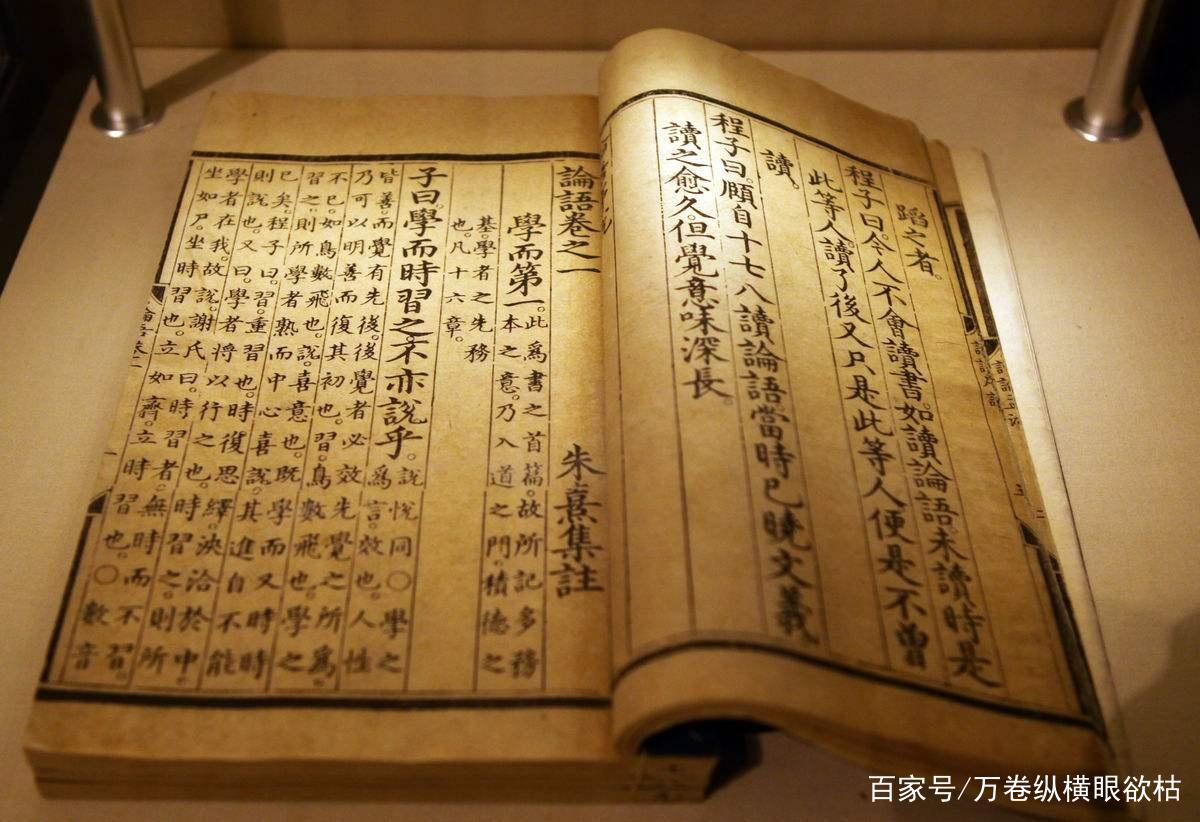 蹈之者。
程子曰。今人不會讀書。如讀論語。未讀時是
此等人。讀了後又只是此等人。便是不曾
讀。
程子曰。頤自十七八讀論語。當時已曉文義
讀之愈久。但覺意味深長。
論語卷之一 朱熹集註
學而第一。此爲書之首篇。故所記多務
本之意。乃入道之門。積德之
基。學者之先務
也。凡十六章。
子曰。學而時習之。不亦說乎。說悅同○學之
爲言效也。人性
皆善。而覺有先後。後覺者必效先覺之所爲。
乃可以明善而復其初也。習。鳥數飛也。學之
不已。如鳥數飛也。說。喜意也。既學而又時時
習之。則所學者熟。而中心喜說。其進自不能
已矣。程子曰。習。重習也。時復思繹。浹洽於中。
則說也。又曰。學者將以行之也。時習之。則所
學者在我。故說。謝氏曰。時習者。無時而不習。
坐如尸。坐時習也。立如齊。立時習也。○數音
百家号/万卷纵横眼欲枯